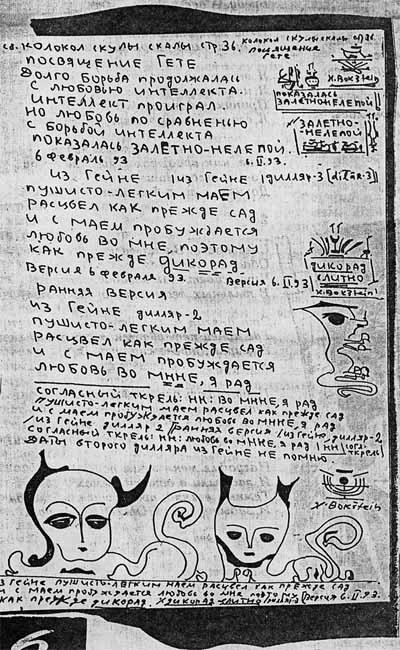 св. колокол скулы скалы стр. 36.
колокол скулы скалы стр. 36.
посвящение
Гете
посвящение Гете
Долго борьба продолжалась
с любовью интеллекта.
Интеллект проиграл.
Но любовь по сравненью
с борьбой интеллекта
показалась залетно-нелепой.
6 февраль 93
6.II.93.
И. Bokštein
показалась
залетнонелепой
залетно-
-нелепой
из Гейне из Гейне дилляр-3
пушисто-легким маем
расцвел как прежде сад
и с маем пробуждается
любовь во мне, поэтому
как прежде дикорад
Версия 6 февраля 93. Версия 6.II.93
дикорад
слитно
И. Bokštein
ранняя версия
из Гейне дилляр-2
пушисто-легким маем
расцвел как прежде сад
и с маем пробуждается
любовь во мнне, я рад
согласный ткрель: нн: во мнне, я рад
пушисто-легким маем расцвел как прежде сад
и с маем пробуждается любовь во мнне, я рад
/из Гейне дилляр 2 / ранняя версия / из Гейне дилляр-2
согласный ткрель: нн: любовь во мнне, я рад
ткрель
даты второго дилляра из Гейне не помню.
Bokštein
из Гейне пушисто-легким маем расцвел как прежде сад
и с маем пробуждается любовь во мне поэтому
как прежде дикорад. дикорад слитно версия 6.II.93.